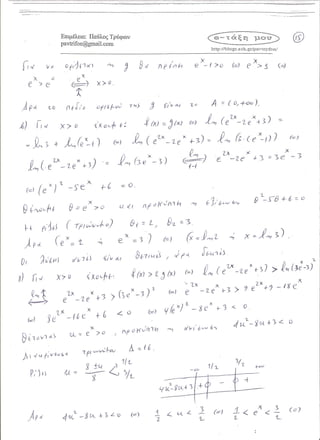 Επιμέλεια: Παύλος Τρύφων
pavtrifon@gmail.com
e-τάξη μου
http://blogs.sch.gr/pavtrifon/
15
Για να ορίζεται η g θα πρέπει e^x-1>0 (⇔) e^x>1 (⇔)
e^x>e^0 ⇔ x>0.
e^x ↑
Άρα το πεδίο ορισμού της g είναι το A=(0,+∞).
Για x>0 έχουμε: f(x)=g(x) (⇔) ln(e^2x-2e^x+3)=
=ln3+ln(e^x-1) (⇔) ln(e^2x-2e^x+3)=ln(3·(e^x-1)) (⇔)
ln(e^2x-2e^x+3)=ln(3e^x-3) ⇔ e^2x-2e^x+3=3e^x-3
ln 1-1
(⇔) (e^x)^2-5e^x+6=0.
Θέτουμε θ=e^x>0 και προκύπτει η εξίσωση θ^2-5θ+6=0
(τριώνυμο) θ1=2, θ2=3.
Άρα (e^x=2 ή e^x=3) (⇔) (x=ln2 ή x=ln3).
Οι λύσεις αυτές είναι θετικές, άρα δεκτές
γ) Για x>0 έχουμε: f(x)>2g(x) (⇔) ln(e^2x-2e^x+3)>ln(3e^x-3)^2
ln ↑ e^2x-2e^x+3>(3e^x-3)^2 (⇔) e^2x-2e^x+3>9e^2x+9-18e^x
(⇔) 8e^2x-16e^x+6<0 (⇔) 4(e^x)^2-8e^x+3<0.
Θέτοντας u=e^x>0, προκύπτει η ανίσωση 4u^2-8u+3<0
Διακρίνουσα τριωνύμου Δ=16.
Ρίζες u=(8±4)/8 1/2 3/2
-∞ 1/2 3/2 +∞
4u^2-8u+3 + 0 - 0 +
Άρα 4u^2-8u+3<0 (⇔) 1/2<u<3/2 (⇔) 1/2<e^x<3/2 (⇔)